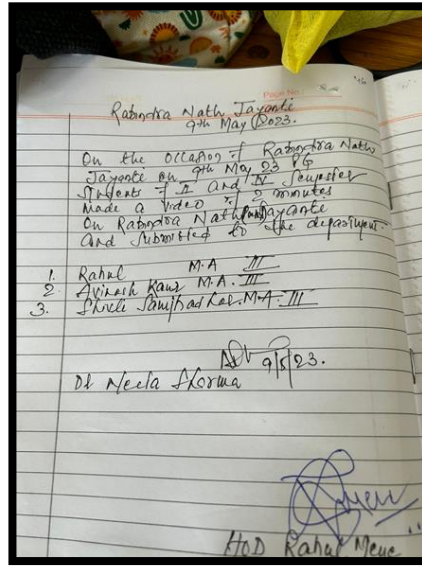 Page No.:
Rabindra Nath Jayanti
9th May 2023.
On the occasion of Rabindra Nath
Jayanti on 9th May 23 PG
Students of II and IV Semester
made a video of 2 minutes
On Rabindra Nath Jayanti
and submitted to the department.
1. Rahul M.A III
2. Avinash Kaur M.A. III
3. M.A. III
9/5/23.
Dr Neeta Sharma
HOD Rahul